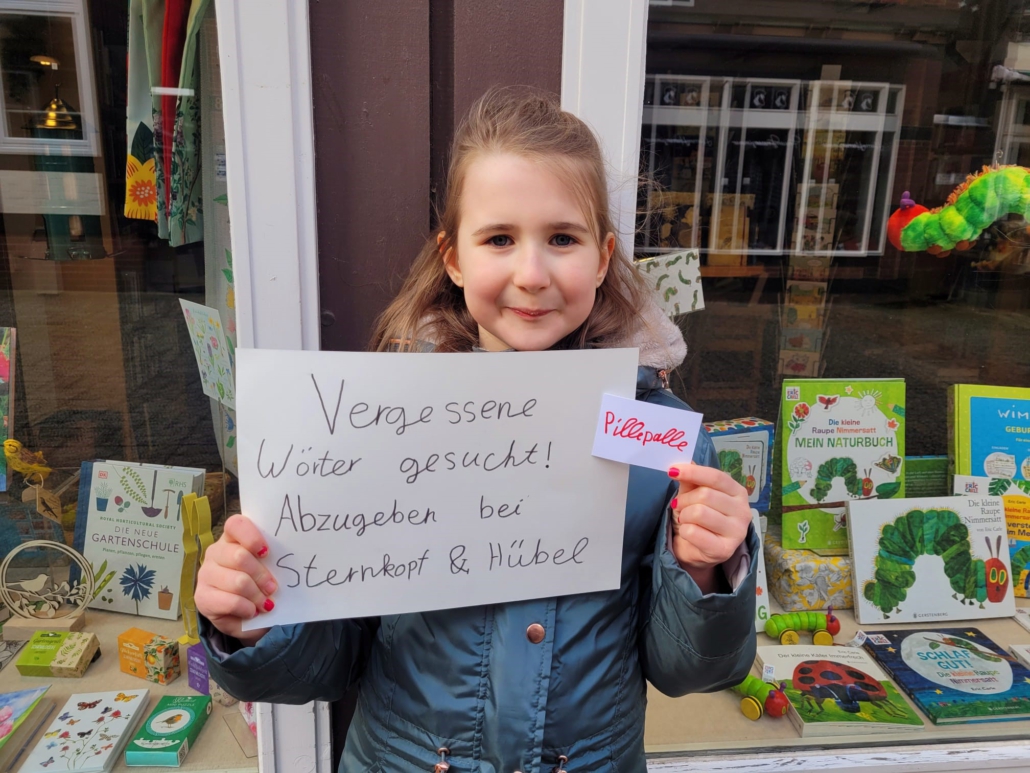 Vergessene
Wörter gesucht!
Abzugeben bei
Sternkopf & Hübel
Pillepalle
DIE NEUE
GARTENSCHULE
Die kleine
Raupe Nimmersatt
MEIN NATURBUCH
Die kleine
Raupe
Nimmersatt
SCHLAF
GUT!
Die kleine Raupe
Nimmersatt